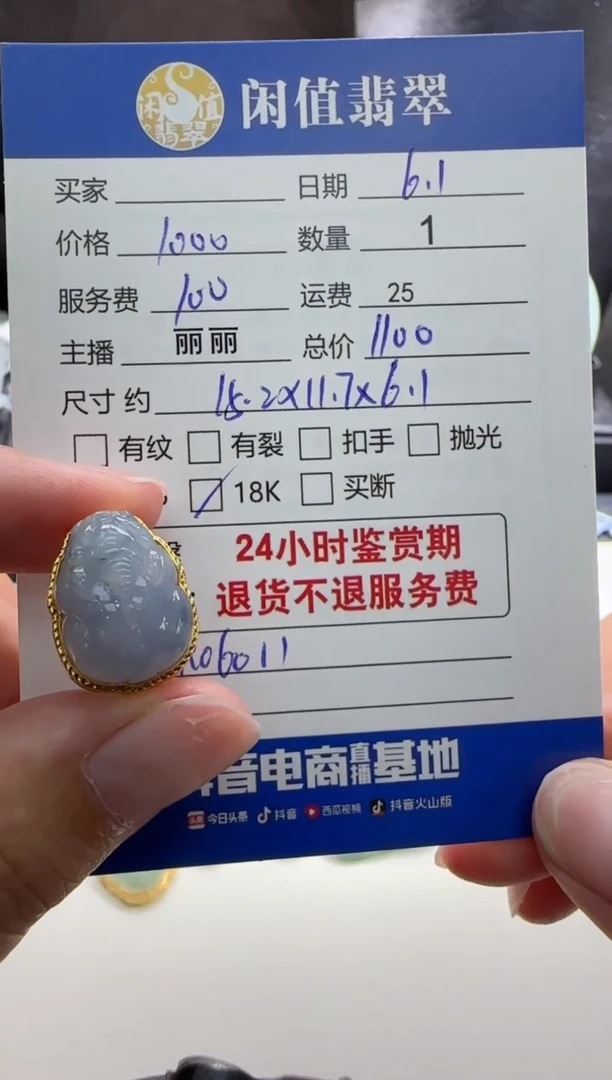 闲值翡翠
闲值翡翠
买家 日期 6.1
价格 1000 数量 1
服务费 100 运费 25
主播 丽丽 总价 1100
尺寸 约 15.2x11.7x6.1
有纹 有裂 扣手 抛光
18K 买断
24小时鉴赏期
退货不退服务费
06011
音电商直播基地
头条 今日头条 抖音 西瓜视频 抖音火山版